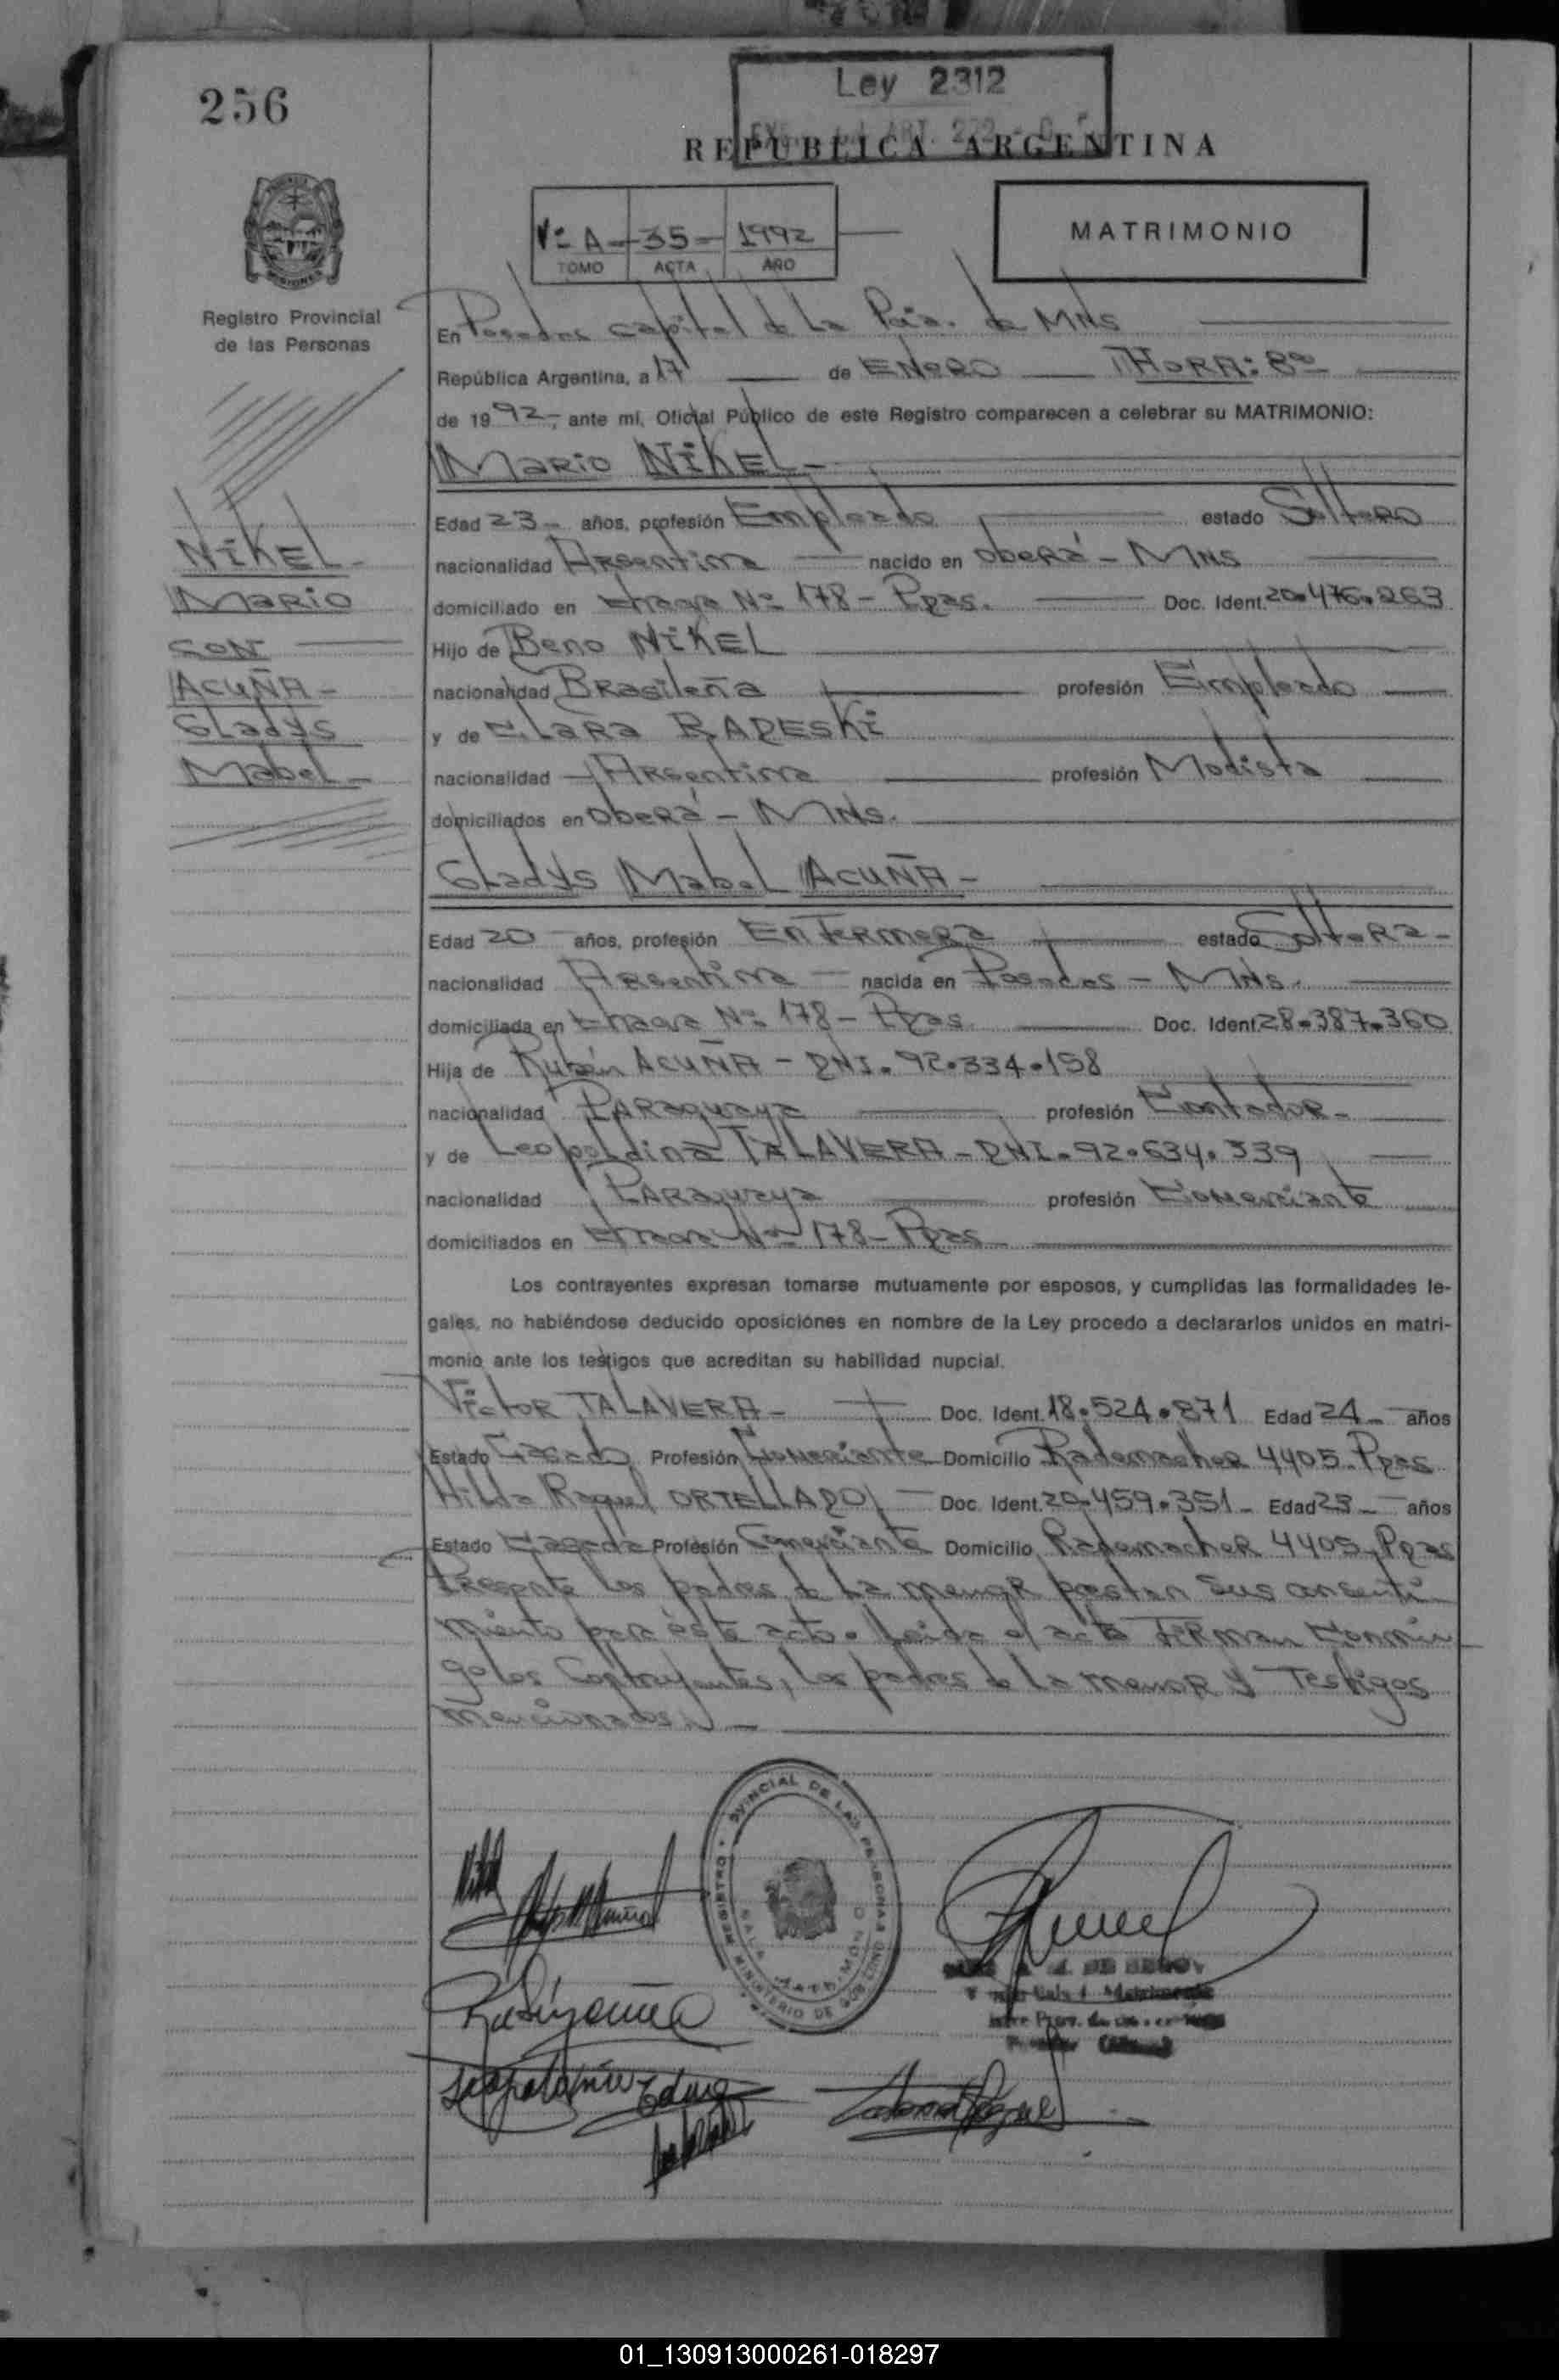 256
Ley 2312
REPUBLICA ARGENTINA
Registro Provincial
de las Personas
Vº A - 35 - 1992
TOMO ACTA AÑO
MATRIMONIO
En Posadas capital de la Pcia. de MNS
República Argentina, a 17 de ENERO HORA: 8
de 1992, ante mí, Oficial Público de este Registro comparecen a celebrar su MATRIMONIO:
Mario NIKEL-
Edad 23- años, profesión Empleado estado Soltero
nacionalidad Argentina nacido en Oberá - MNS
domiciliado en Nº 178 - Pdas. Doc. Ident. 20.476.263
Hijo de Beno NIKEL
nacionalidad Brasileña profesión Empleado
y de Clara RADESKI
nacionalidad Argentina profesión Modista
domiciliados en Oberá - MNS.
NIKEL-
Mario
CON
ACUÑA-
Gladys
Mabel-
Gladys Mabel ACUÑA-
Edad 20 años, profesión Enfermera estado Soltera-
nacionalidad Argentina nacida en Posadas - MNS.
domiciliada en Nº 178 - Pdas Doc. Ident. 28.387.360
Hija de Rubén ACUÑA - DNI. 92.334.158
nacionalidad Paraguaya profesión Contador-
y de Leopoldina TALAVERA - DNI. 92.634.339
nacionalidad Paraguaya profesión Comerciante
domiciliados en Nº 178 - Pdas
Los contrayentes expresan tomarse mutuamente por esposos, y cumplidas las formalidades le-
gales, no habiéndose deducido oposiciónes en nombre de la Ley procedo a declararlos unidos en matri-
monio ante los testigos que acreditan su habilidad nupcial.
Victor TALAVERA- Doc. Ident. 18.524.871 Edad 24- años
Estado Casado Profesión Comerciante Domicilio Rademacher 4405 - Pdas
Hilda Raquel ORTELLADO - Doc. Ident. 20.459.351 - Edad 23- años
Estado Casada Profesión Comerciante Domicilio Rademacher 4405, Pdas
Presente los padres de la menor prestan sus consenti-
miento para éste acto. Leida el acta firman conmi-
go los Contrayentes, los padres de la menor y Testigos
mencionados.-
REGISTRO PROVINCIAL DE LAS PERSONAS
MINISTERIO DE GOBIERNO
SALA MATRIMONIO
01_130913000261-018297